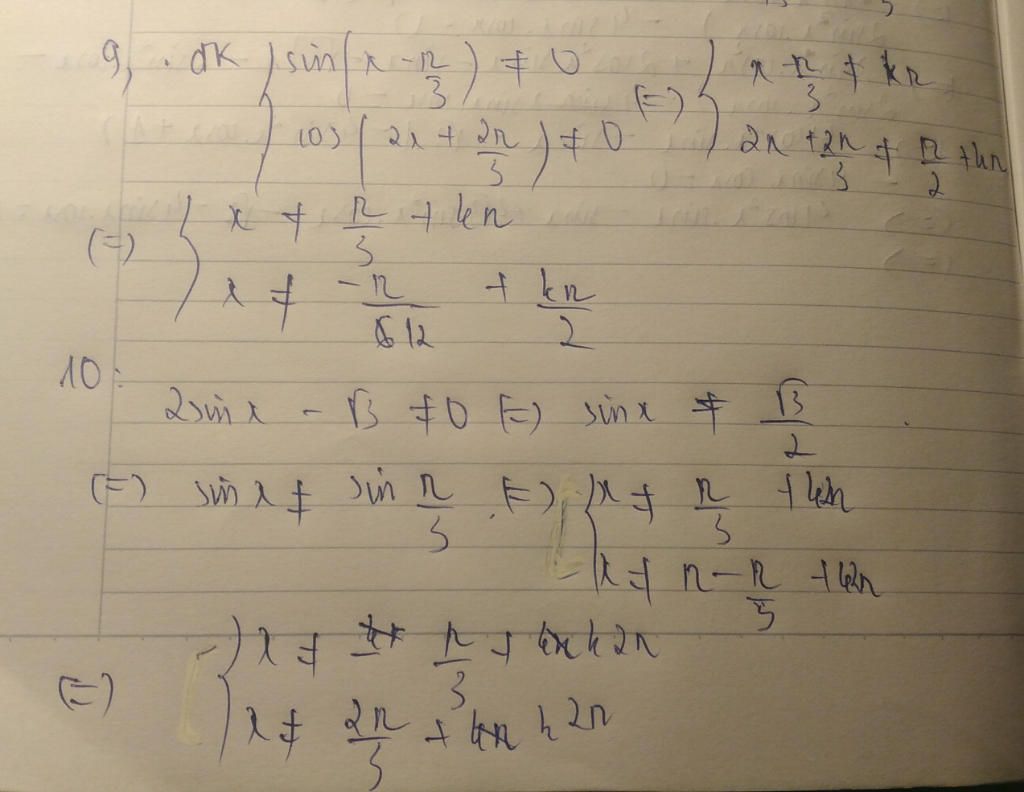 9, . ĐK { sin(x - π/3) ≠ 0 (=) { x - π/3 ≠ kπ
cos(2x + 2π/3) ≠ 0 2x + 2π/3 ≠ π/2 + kπ
(=) { x ≠ π/3 + kπ
x ≠ -π/12 + kπ/2
10:
2sinx - √3 ≠ 0 (=) sinx ≠ √3/2
(=) sin x ≠ sin π/3 . (=) { x ≠ π/3 + k2π
x ≠ π - π/3 + k2π
(=) { x ≠ π/3 + k2π
x ≠ 2π/3 + k2π